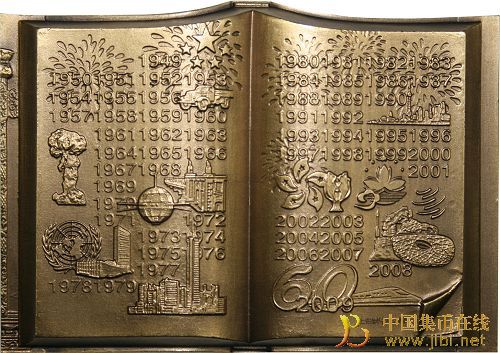 1949
1950 1951 1952 1953
1954 1955 1956
1957 1958 1959 1960
1961 1962 1963
1964 1965 1966
1967 1968
1969
1972
1973 974
1975 76
1977
1978 1979
1980 1981 1982 1983
1984 1985 1986 1987
1988 1989 1990
1991 1992
1993 1994 1995 1996
1998 1999 2000
2001
2002 2003
2004 2005
2006 2007
2008
60
2009
中国集币在线
www.jibi.net